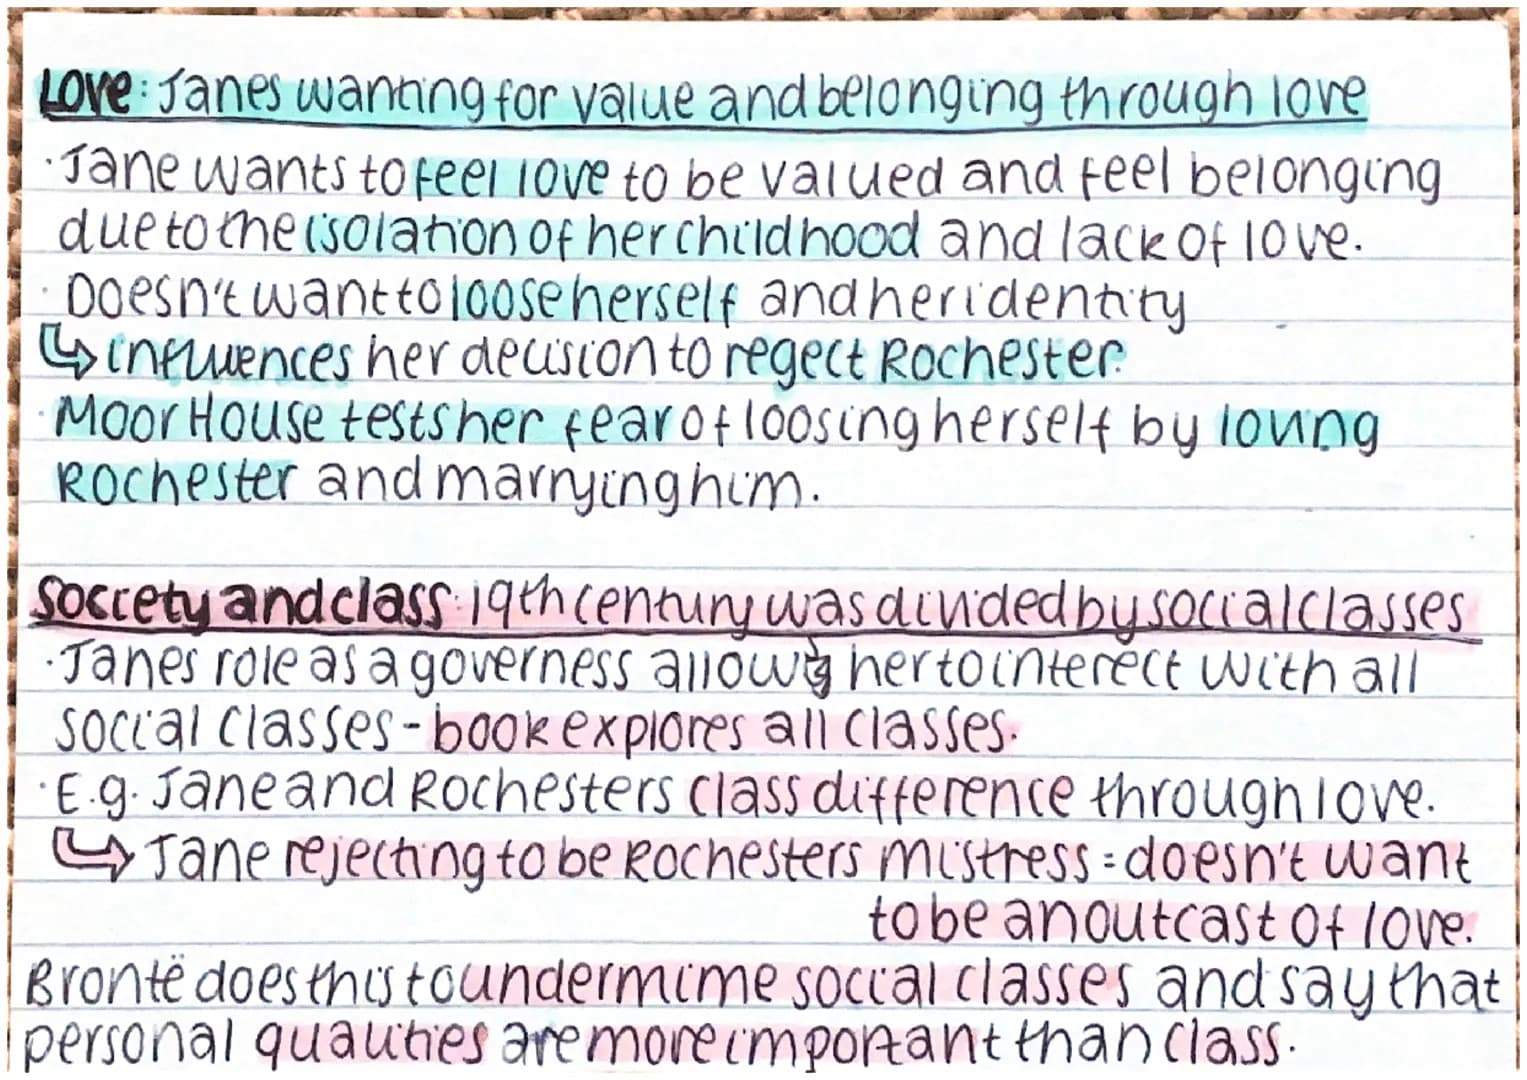 Love: Janes wanting for value and belonging through love
· Jane wants to feel love to be valued and feel belonging
due to the isolation of her childhood and lack of love.
· Doesn't want to loose herself and her identity
↳ influences her decision to regect Rochester.
· Moor House tests her fear of loosing herself by loving
Rochester and marrying him.
Society and class: 19th century was divided by social classes
· Janes role as a governess allows her to interect with all
social classes - book explores all classes.
· E.g. Jane and Rochesters class difference through love.
↳ Jane rejecting to be Rochesters mistress = doesn't want
to be an outcast of love.
Brontë does this to undermime social classes and say that
personal qualities are more important than class.